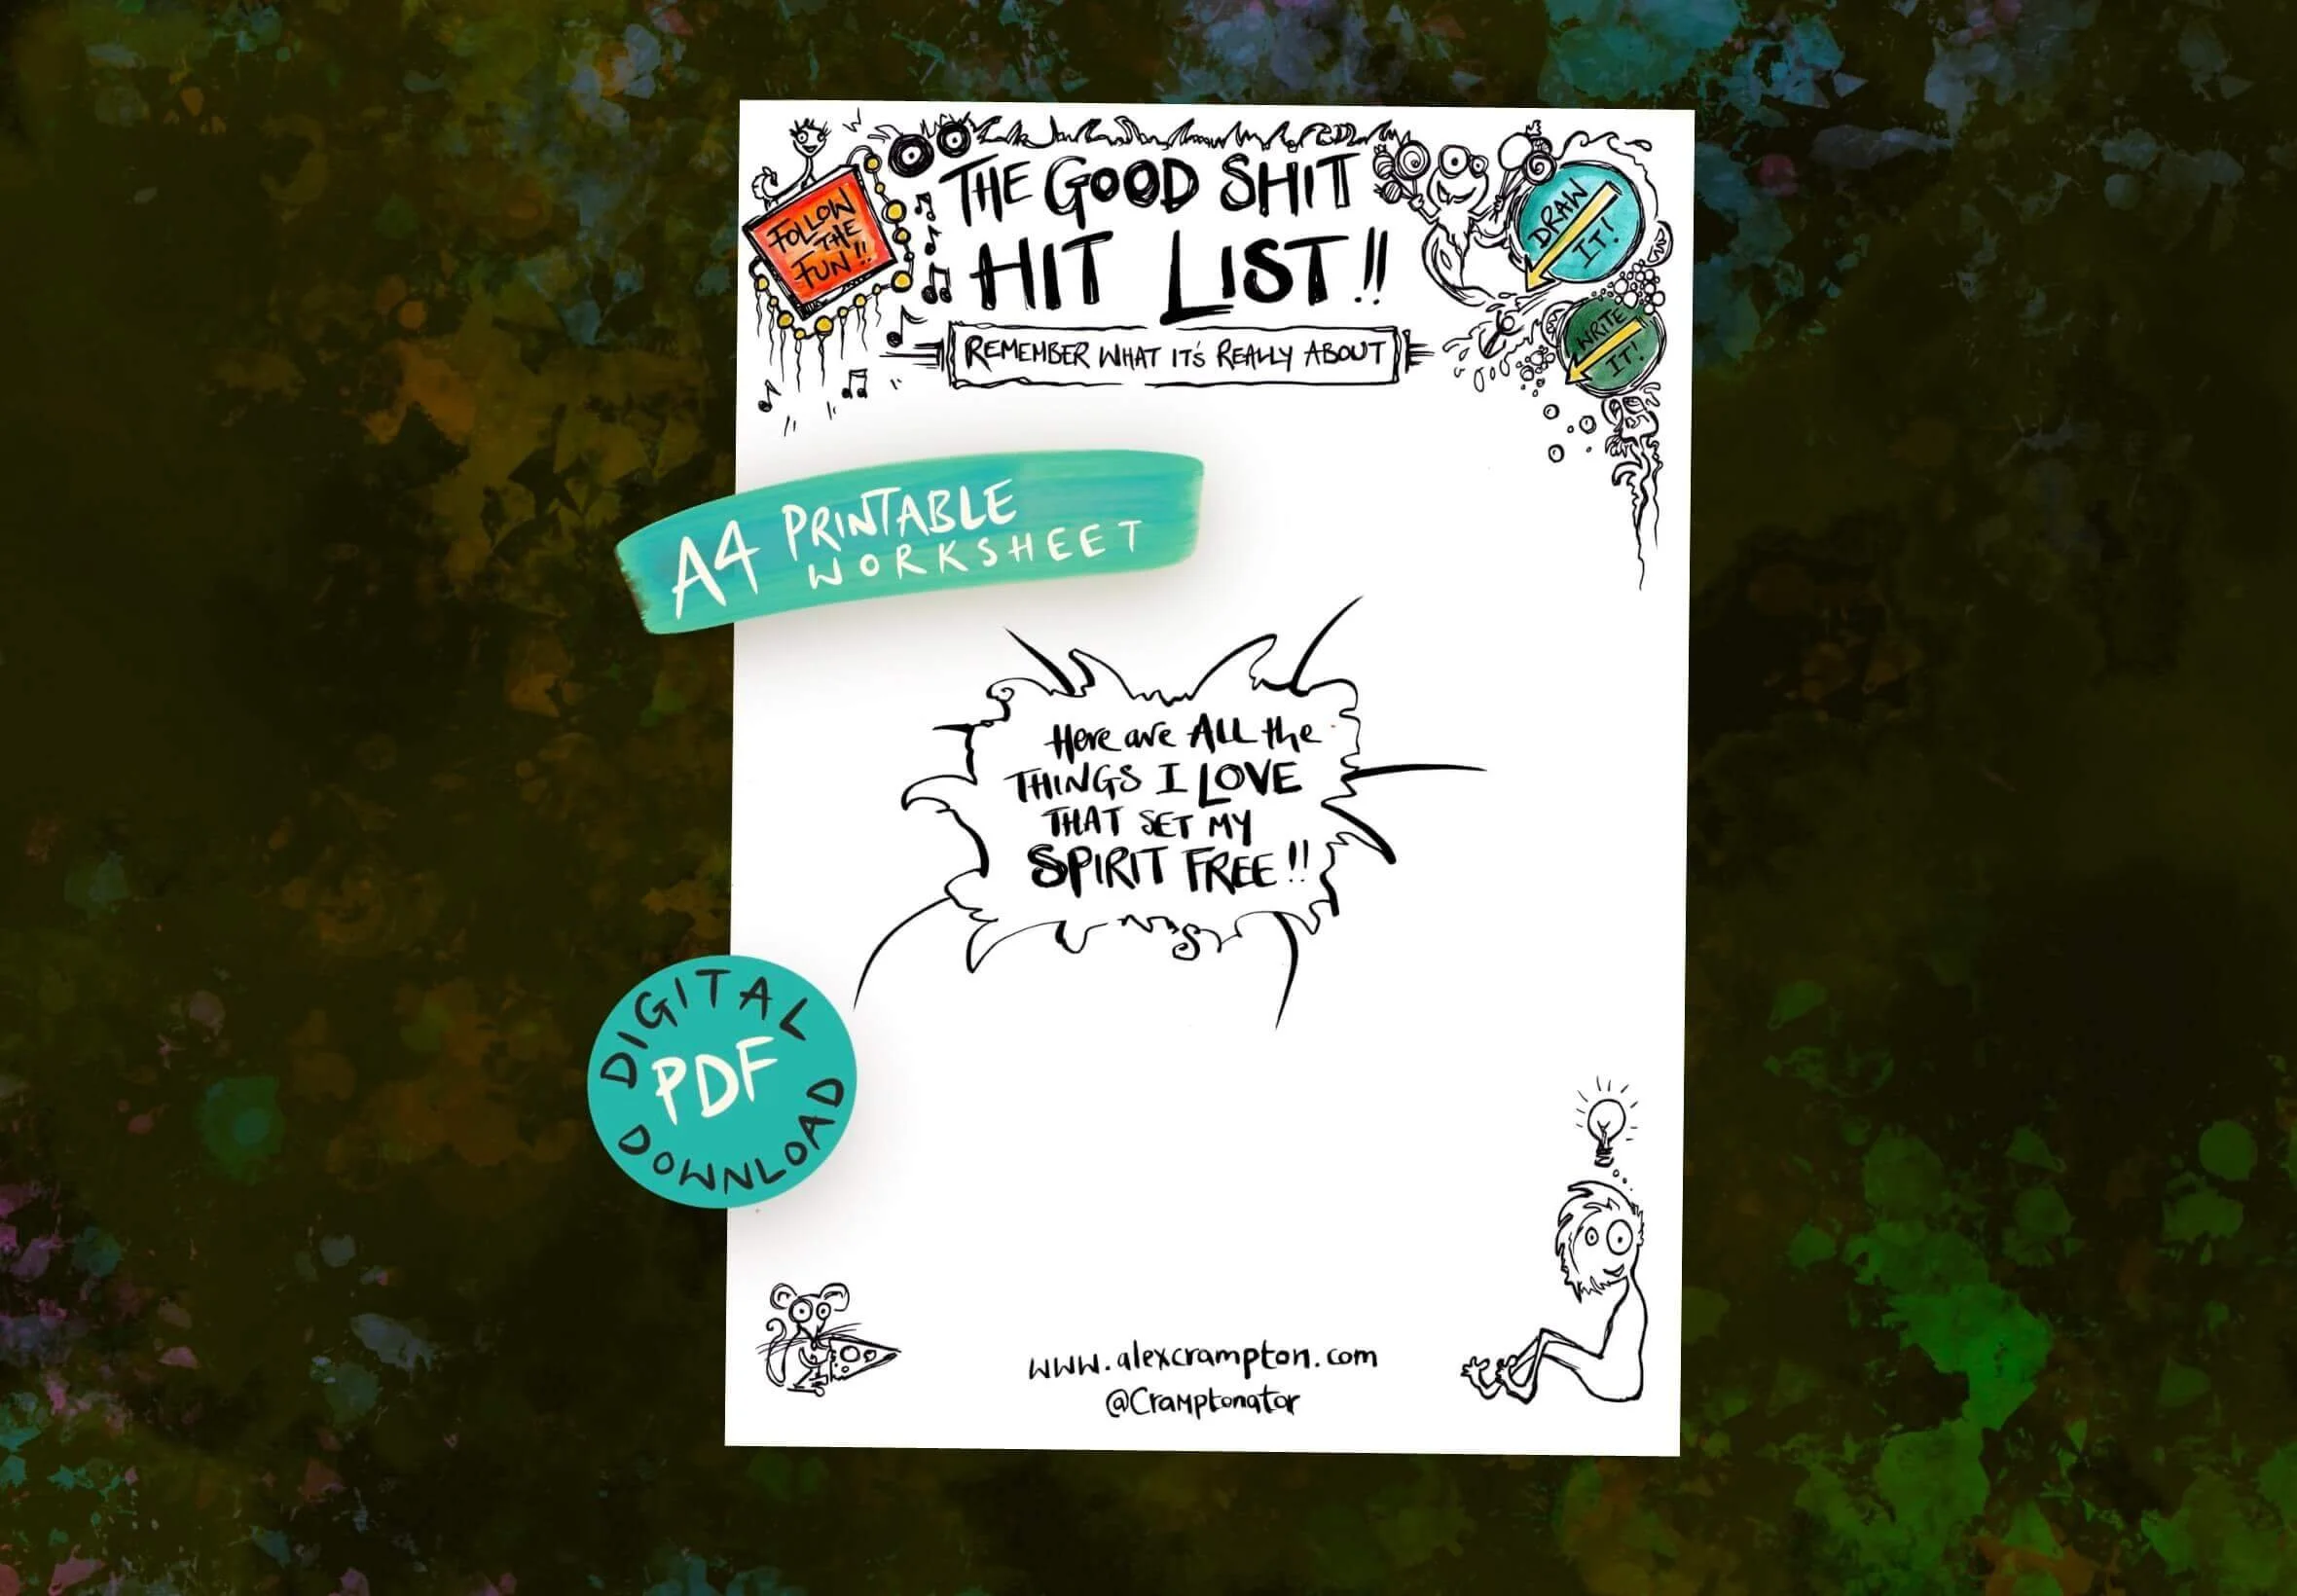 THE GOOD SHIT
HIT LIST!!
REMEMBER WHAT IT'S REALLY ABOUT
FOLLOW
THE
FUN!!
DRAW
IT!
WRITE
IT!
A4 PRINTABLE
WORKSHEET
Here are ALL the
THINGS I LOVE
THAT SET MY
SPIRIT FREE!!
DIGITAL
PDF
DOWNLOAD
www.alexcrampton.com
@Cramptonator